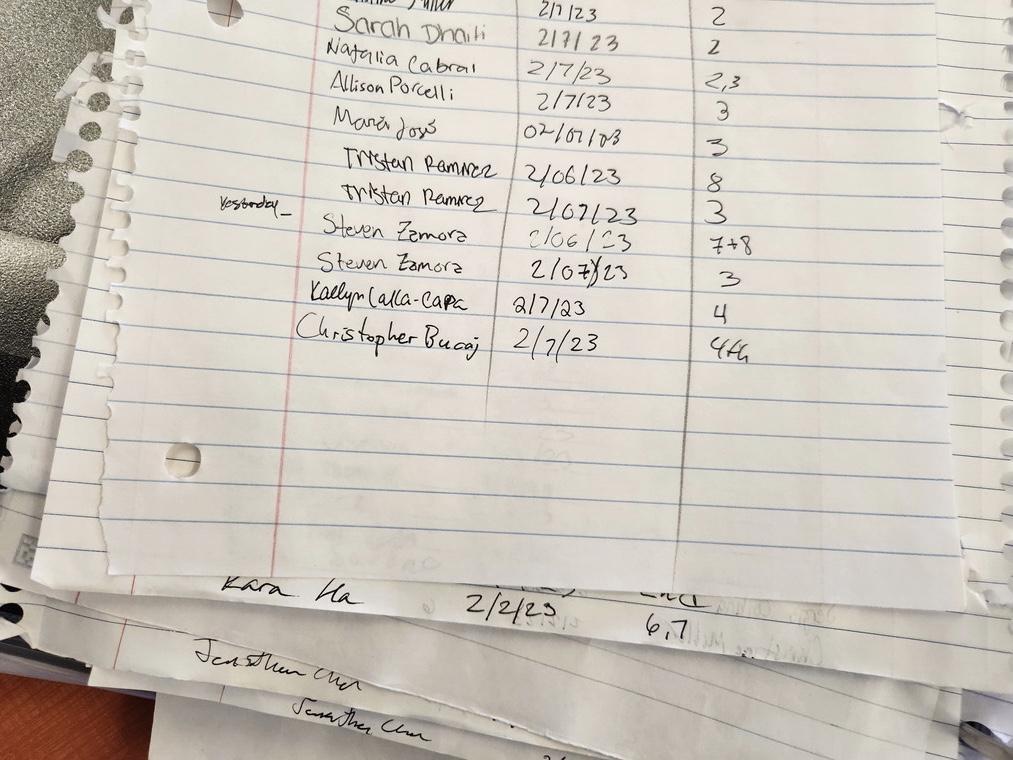 2/7/23 2
Sarah Dhaiti 2/7/23 2
Natalia Cabral 2/7/23 2,3
Allison Porcelli 2/7/23 3
María José 02/07/23 3
Tristan Ramirez 2/06/23 8
Tristan Ramirez 2/07/23 3
Yesterday_ Steven Zamora 2/06/23 7+8
Steven Zamora 2/07/23 3
Kaelyn Calla-Capa 2/7/23 4
Christopher Bucaj 2/7/23 4th
Kara Ha 2/2/23 6,7
Jonathan